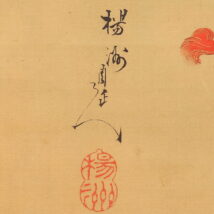 楊洲周延
楊州